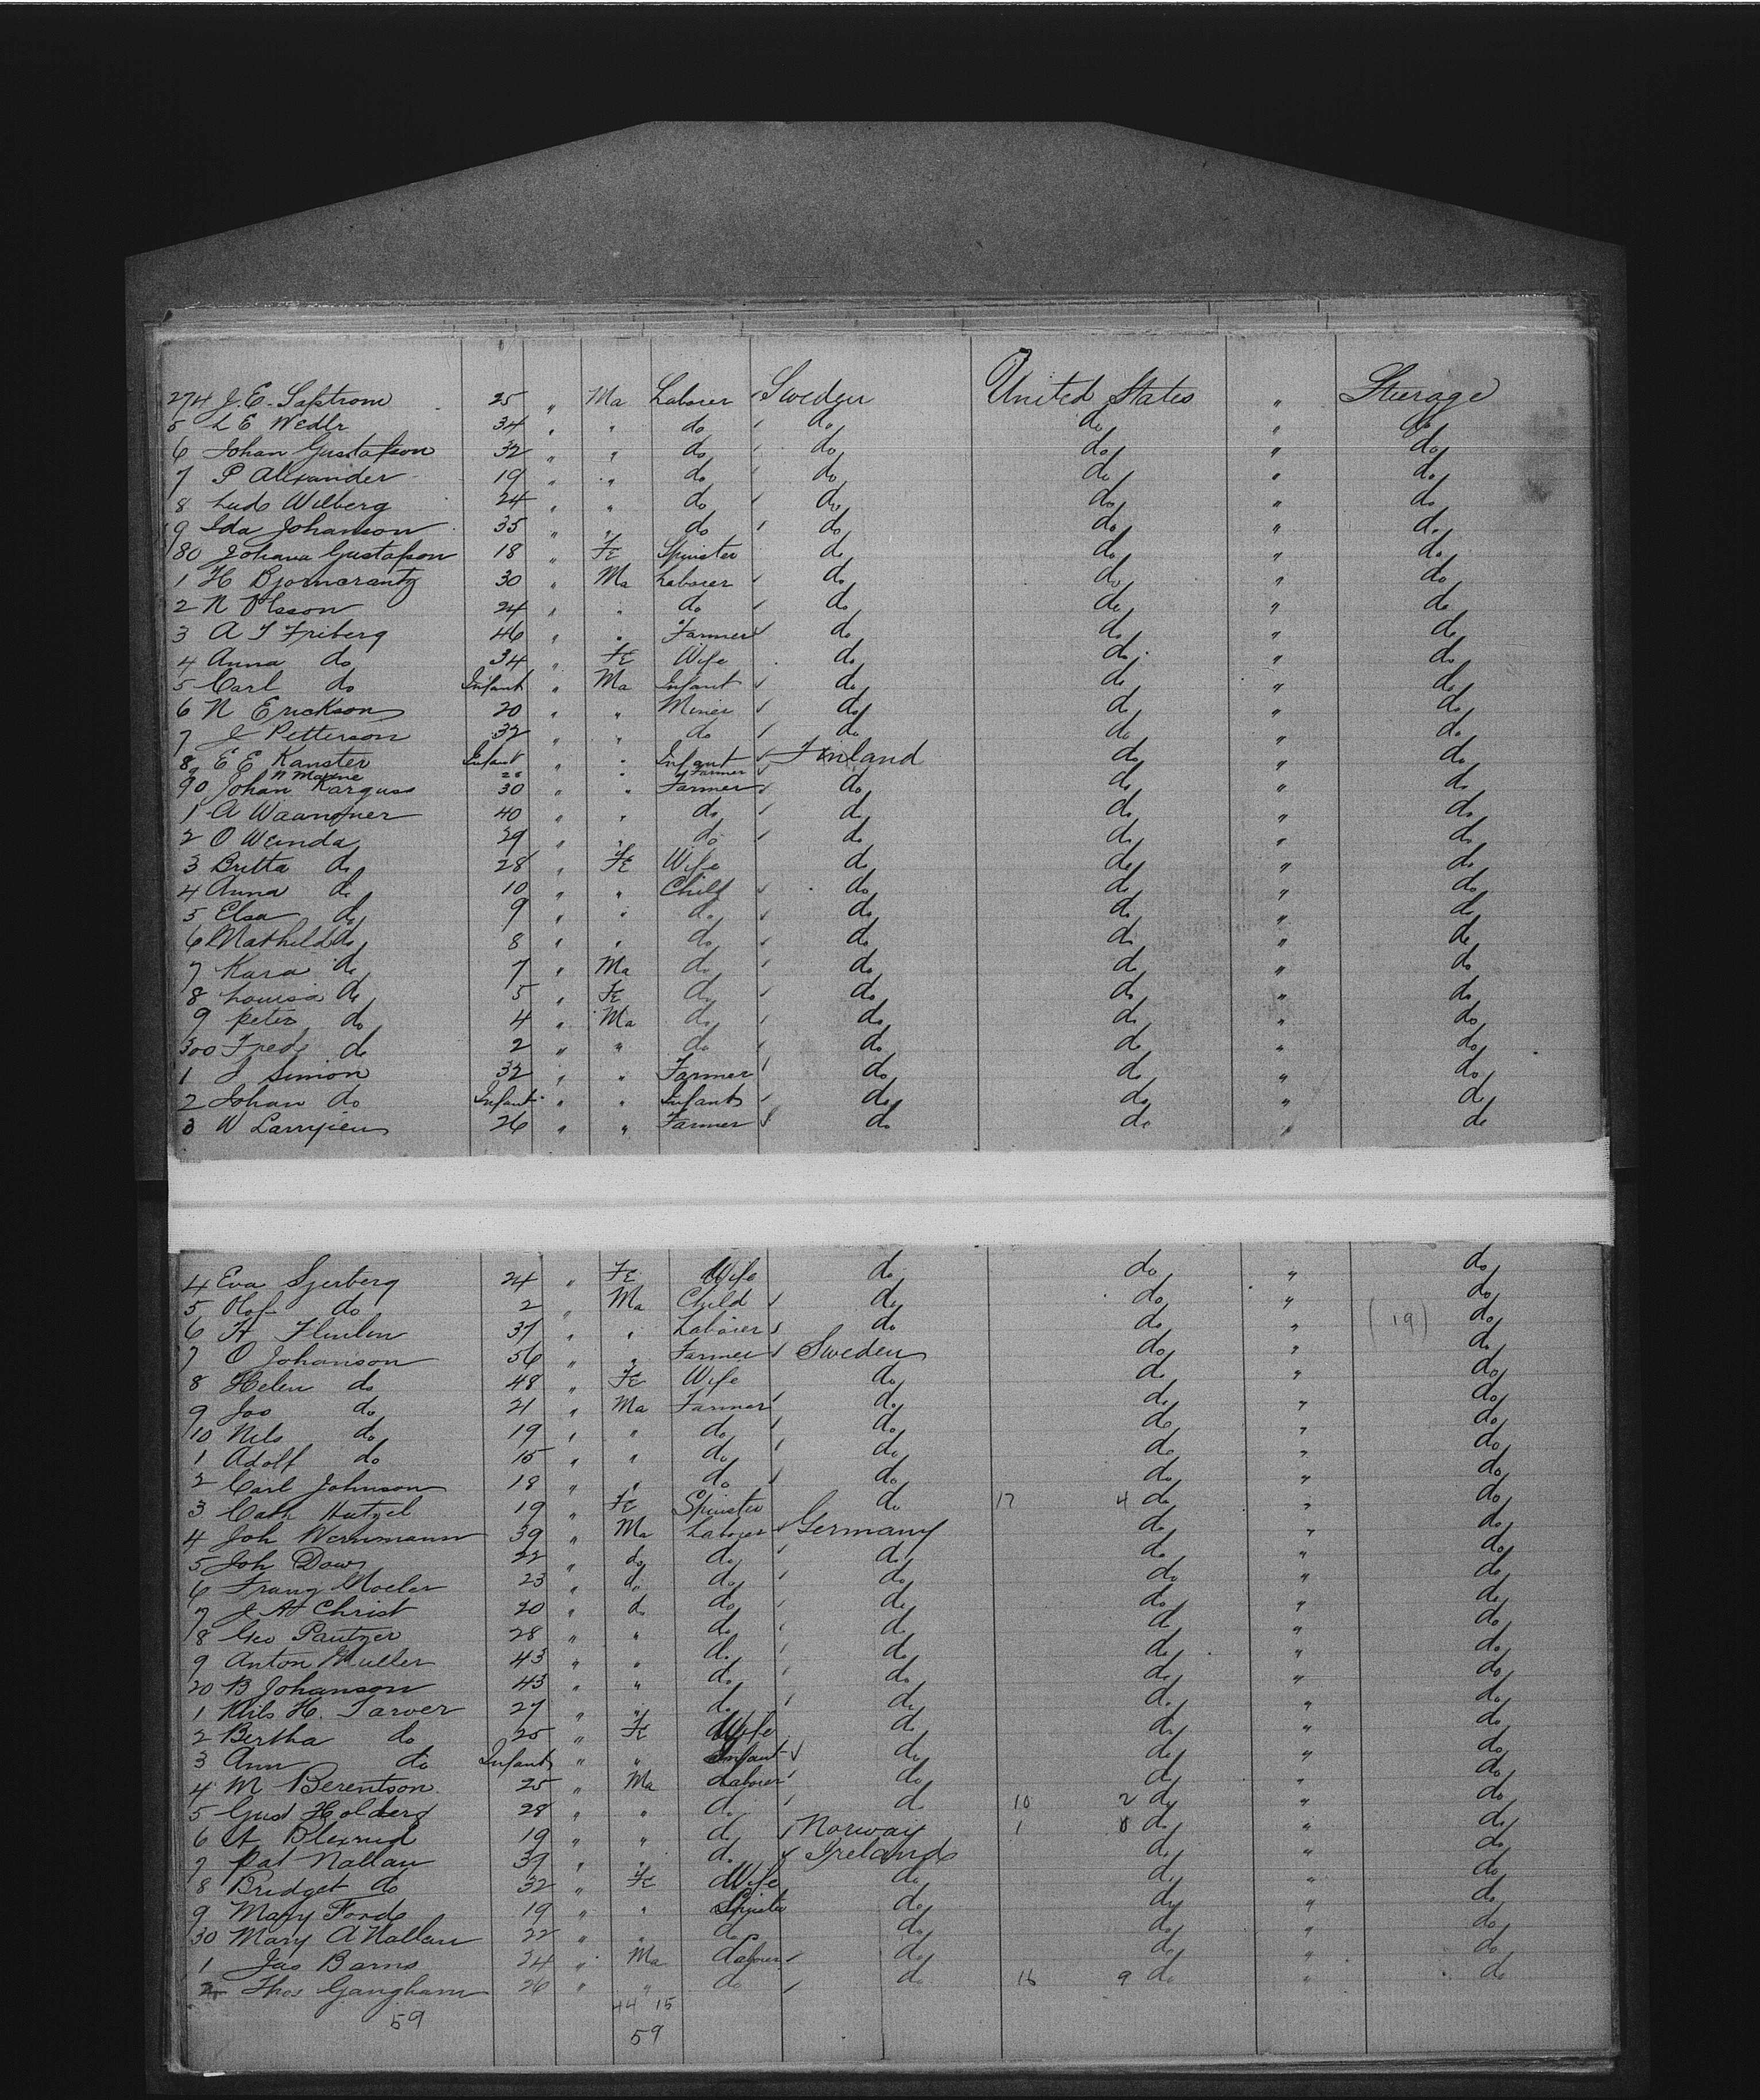 274 J. E. Safstrom 25 " Ma Laborer Sweden United States " Steerage
5 L E Wedlr 34 " " do do do " do
6 Johan Gustafson 32 " " do do do " do
7 P Alexander 19 " " do do do " do
8 Lud Wilberg 24 " " do do do " do
9 Ida Johanson 35 " " do do do " do
80 Johana Gustafson 18 " Fe Spinster do do " do
1 H Bjorncrantz 30 " Ma Laborer do do " do
2 N Olsson 24 " " do do do " do
3 A J Friberg 46 " " Farmer do do " do
4 Anna do 34 " Fe Wife do do " do
5 Carl do Infant " Ma Infant do do " do
6 N Erickson 20 " " Miner do do " do
7 J Petterson 32 " " do do do " do
8 E E Kanster Infant " " Infant Finland do " do
9 N Marne 26 Farmer
90 Johan Karguss 30 " " Farmer do do " do
1 A Waangner 40 " " do do do " do
2 O Wainda 29 " " do do do " do
3 Britta do 28 " Fe Wife do do " do
4 Anna do 10 " " Child do do " do
5 Elsa do 9 " " do do do " do
6 Mathild do 8 " " do do do " do
7 Kara do 7 " Ma do do do " do
8 Louisa do 5 " Fe do do do " do
9 peter do 4 " Ma do do do " do
300 Fred do 2 " " do do do " do
1 J Simon 32 " " Farmer do do " do
2 Johan do Infant " " Infant do do " do
3 W Larrjieu 26 " " Farmer do do " do
4 Eva Sjerberg 24 " Fe Wife do do " do
5 Olof do 2 " Ma Child do do " do
6 H Flinlen 37 " " Laborer do do " (19) do
7 O Johanson 56 " " Farmer Sweden do " do
8 Helen do 48 " Fe Wife do do " do
9 Jos do 21 " Ma Farmer do do " do
10 Nils do 19 " " do do do " do
1 Adolf do 15 " " do do do " do
2 Carl Johnson 18 " " do do do " do
3 Cath Hutzel 19 " Fe Spinster do 17 4 do " do
4 Joh Wernmann 39 " Ma Laborer Germany do " do
5 Joh Daws 22 " do do do do " do
6 Franz Moeler 23 " do do do do " do
7 J A Christ 20 " do do do do " do
8 Geo Pautzer 28 " " do do do " do
9 Anton Muller 43 " " do do do " do
20 B Johanson 43 " " do do do " do
1 Nils H. Tarver 27 " " do do do " do
2 Bertha do 25 " Fe Wife do do " do
3 Ann do Infant " " Infant do do " do
4 M Berentson 25 " Ma Laborer do do " do
5 Gust Holberg 28 " " do do 10 2 do " do
6 A Blexrud 19 " " do Norway 1 0 do " do
7 Pat Nallan 39 " " do Ireland do " do
8 Bridget do 32 " Fe Wife do do " do
9 Mary Ford 19 " " Spinster do do " do
30 Mary A Nallan 22 " " do do do " do
1 Jas Barns 24 " Ma Laborer do do " do
2 Thos Gangham 26 " " do do 16 9 do " do
59 44 15
59